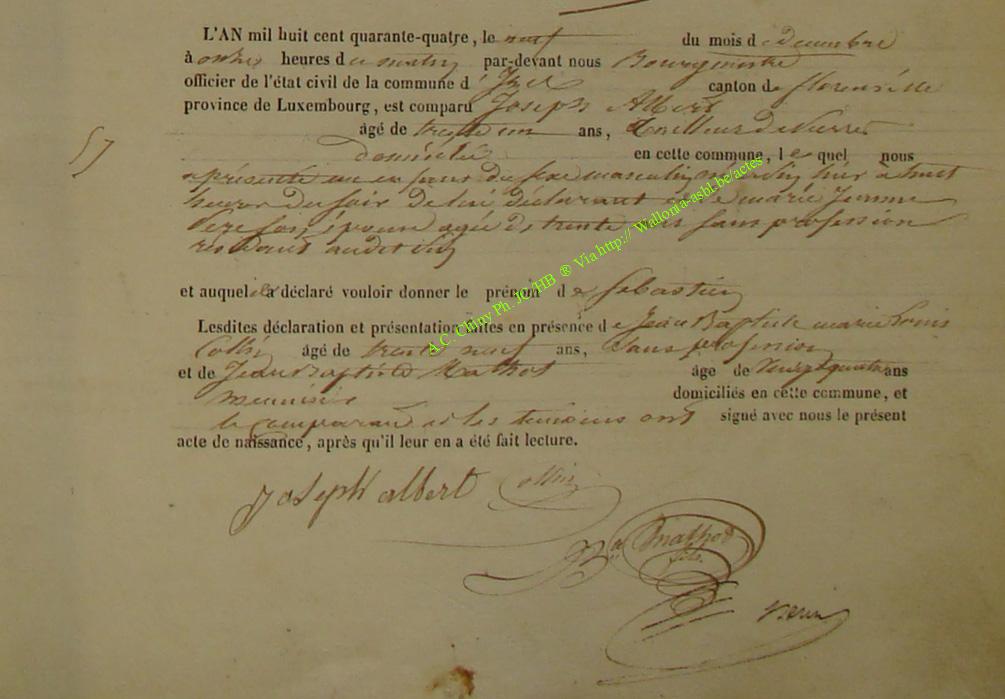 L'AN mil huit cent quarante-quatre, le neuf du mois de decembre
à onze heures du matin par-devant nous Bourgmestre
officier de l'état civil de la commune d'Izel canton de florenville
province de Luxembourg, est comparu Joseph Albert
âgé de trente un ans, tailleur de Pierres
57 domicilié en cette commune, lequel nous
a présenté un enfant du sexe masculin né hier à huit
heures du soir de lui déclarant et de marie Jeanne
épouse agée de trente ans sans profession
résidant audit Izel
et auquel il a déclaré vouloir donner le prénom de Sebastien
Lesdites déclaration et présentation faites en présence de Jean Baptiste marie Louis
Collin âgé de trente neuf ans, sans profession
et de Jean Baptiste Mathot âge de vingt quatre ans
menuisier domiciliés en cette commune, et
le comparant et les temoins ont signé avec nous le présent
acte de naissance, après qu'il leur en a été fait lecture.
joseph albert Collin
Bte mathot
fils
A.C. Chiny Ph. JC/HB ® Via http://Wallonia-asbl.be/actes